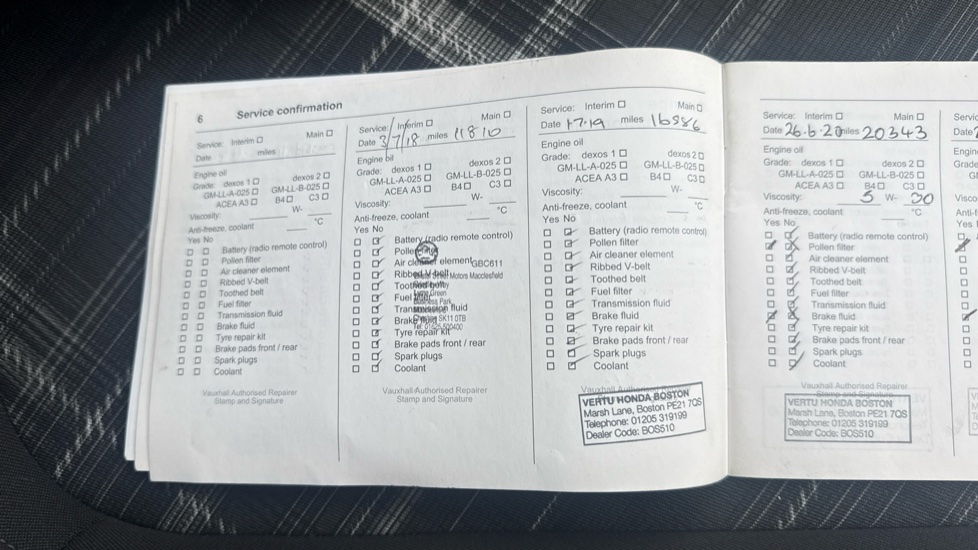 6 Service confirmation
Service: Interim ☐ Main ☐
Date miles
Engine oil
Grade: dexos 1 ☐ dexos 2 ☐
GM-LL-A-025 ☐ GM-LL-B-025 ☐
ACEA A3 ☐ B4 ☐ C3 ☐
Viscosity: W-
Anti-freeze, coolant °C
Yes No
Battery (radio remote control)
Pollen filter
Air cleaner element
Ribbed V-belt
Toothed belt
Fuel filter
Transmission fluid
Brake fluid
Tyre repair kit
Brake pads front / rear
Spark plugs
Coolant
Vauxhall Authorised Repairer
Stamp and Signature
Service: Interim ☐ Main ☐
Date 3/7/18 miles 11810
Engine oil
Grade: dexos 1 ☐ dexos 2 ☐
GM-LL-A-025 ☐ GM-LL-B-025 ☐
ACEA A3 ☐ B4 ☐ C3 ☐
Viscosity: W-
Anti-freeze, coolant °C
Yes No
Battery (radio remote control)
Pollen
Air cleaner element GBC611
Ribbed V-belt Motors Macclesfield
Toothed belt
Fuel filter
Transmission fluid
Brake fluid
SK11 0TB
Tyre repair kit
Brake pads front / rear
Spark plugs
Coolant
Vauxhall Authorised Repairer
Stamp and Signature
Service: Interim ☐ Main ☐
Date 1-7-19 miles 16986
Engine oil
Grade: dexos 1 ☐ dexos 2 ☐
GM-LL-A-025 ☐ GM-LL-B-025 ☐
ACEA A3 ☐ B4 ☐ C3 ☐
Viscosity: W-
Anti-freeze, coolant °C
Yes No
Battery (radio remote control)
Pollen filter
Air cleaner element
Ribbed V-belt
Toothed belt
Fuel filter
Transmission fluid
Brake fluid
Tyre repair kit
Brake pads front / rear
Spark plugs
Coolant
Vauxhall Authorised
VERTU HONDA BOSTON
Marsh Lane, Boston PE21 7QS
Telephone: 01205 319199
Dealer Code: BOS510
Service: Interim ☐ Main ☐
Date 26.6.20 miles 20343
Engine oil
Grade: dexos 1 ☐ dexos 2 ☐
GM-LL-A-025 ☐ GM-LL-B-025 ☐
ACEA A3 ☐ B4 ☐ C3 ☐
Viscosity: 5 W- 30
Anti-freeze, coolant °C
Yes No
Battery (radio remote control)
Pollen filter
Air cleaner element
Ribbed V-belt
Toothed belt
Fuel filter
Transmission fluid
Brake fluid
Tyre repair kit
Brake pads front / rear
Spark plugs
Coolant
Vauxhall Authorised Repairer
VERTU HONDA BOSTON
Marsh Lane, Boston PE21 7QS
Telephone: 01205 319199
Dealer Code: BOS510